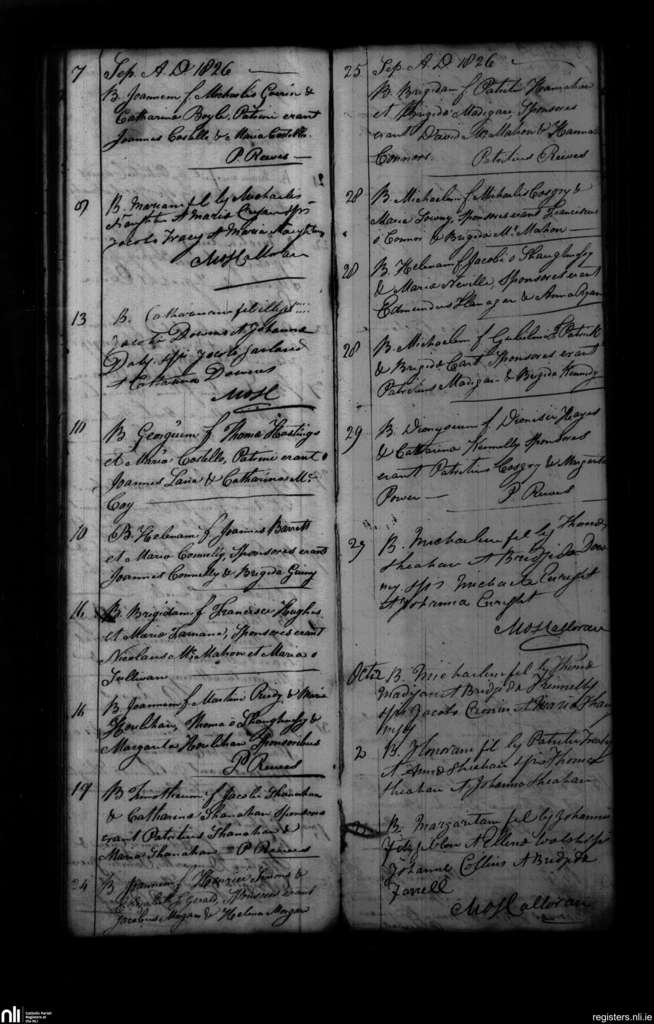 7 Sep. A. D 1826
B Joannem f Michaelis Guerin &
Catharina Boyle, Patrini erant
Joannes Costello & Maria Costello.
P. Reeves
9 B. Mariam fil by Michaelis
Naughten A Maria
Jacobo Tracy A Maria Naughten
M OHalloran
13 B. Catharinam fil illigt
Jacobi Downs A Johanna
Daly. sps Jacobo
A Catharina Downs
M OH
10 B. Georgium f Thoma Hastings
et Maria Costello, Patrini erant
Joannes Lane & Catharina Mc
Coy
10 B. Helenam f Joannis Barrett
et a Maria Connelly, Sponsores erant
Joannes Connelly & Brigida
16 B. Brigidam f Francisci Hughes
et Maria, Sponsores erant
Nicolaus McMahon et Maria o
Sullivan
16 B Joannem f Martini Reidy & Maria
Houlihan, Thoma o Shaughnessy &
Margarita Houlihan Sponsoribus
P Reeves
19 B Timotheum f Jacobi Shanahan
& Catharina Shanahan Sponsores
erant Patritius Shanahan &
Maria Shanahan P Reeves
24 B Joannem f Henrici &
Gerald, Sponsores erant
Jacobus Magan & Helena Magan
25 Sep. A. D 1826
B Brigidam f Patritii Hanrahan
et Brigida Madigan, Sponsores
erant David McMahon & Hanna
Connors. Patritius Reeves
28 B. Michaelem f Michaelis Cosgry &
Maria, Sponsores erant Franciscus
o Connor & Brigida Mc Mahon
28 B. Helenam f Jacobi o Shaughnessy
& Maria Neville, Sponsores erant
Edmundus Flanagan & Anna Ryan
28 B. Michaelem f Gulielmi Fitz Patrick
& Brigida, Sponsores erant
Patritius Madigan & Brigida Kennedy
29 B. Dionysium f Dionisii Hayes
& Catharina Kennelly Sponsores
erant Patritius Cosgry & Margarita
Power P Reeves
29 B. Michaelem fil by Thoma
Sheahan A Bridgida Dow
ny sps Michaele Enright
A Johanna Enright
M OHalloran
Octr 2 B. Michaelem fil by Thoma
Madigan A Bridgida Kennelly
sps Jacobo Cronin A Maria Shaug
nessy
2 B. Honoram fil by Patritii
A Anna Sheehan sps Thoma
Sheahan A Johanna Sheahan
B. Margaritam fil by Johannis
A Ellena Walsh sps
Johanne Collins A Bridgida
Farrell
M OHalloran
nli Catholic Parish
Registers at
the NLI
registers.nli.ie